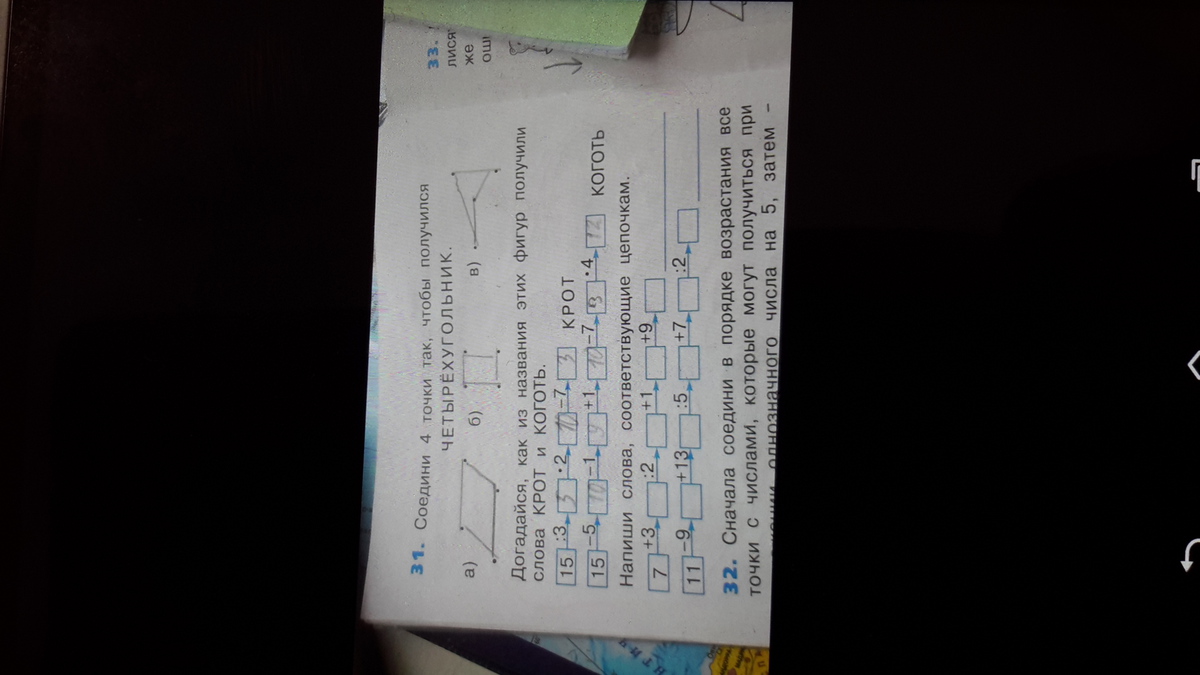 31. Соедини 4 точки так, чтобы получился
ЧЕТЫРЁХУГОЛЬНИК.
а) б) в)
Догадайся, как из названия этих фигур получили
слова КРОТ и КОГОТЬ.
15 :3 5 ·2 10 −7 3 КРОТ
15 −5 10 −1 9 +1 10 −7 3 ·4 12 КОГОТЬ
Напиши слова, соответствующие цепочкам.
7 +3 :2 +1 +9
11 −9 +13 :5 +7 :2
32. Сначала соедини в порядке возрастания все
точки с числами, которые могут получиться при
однозначного числа на 5, затем –
33.
же